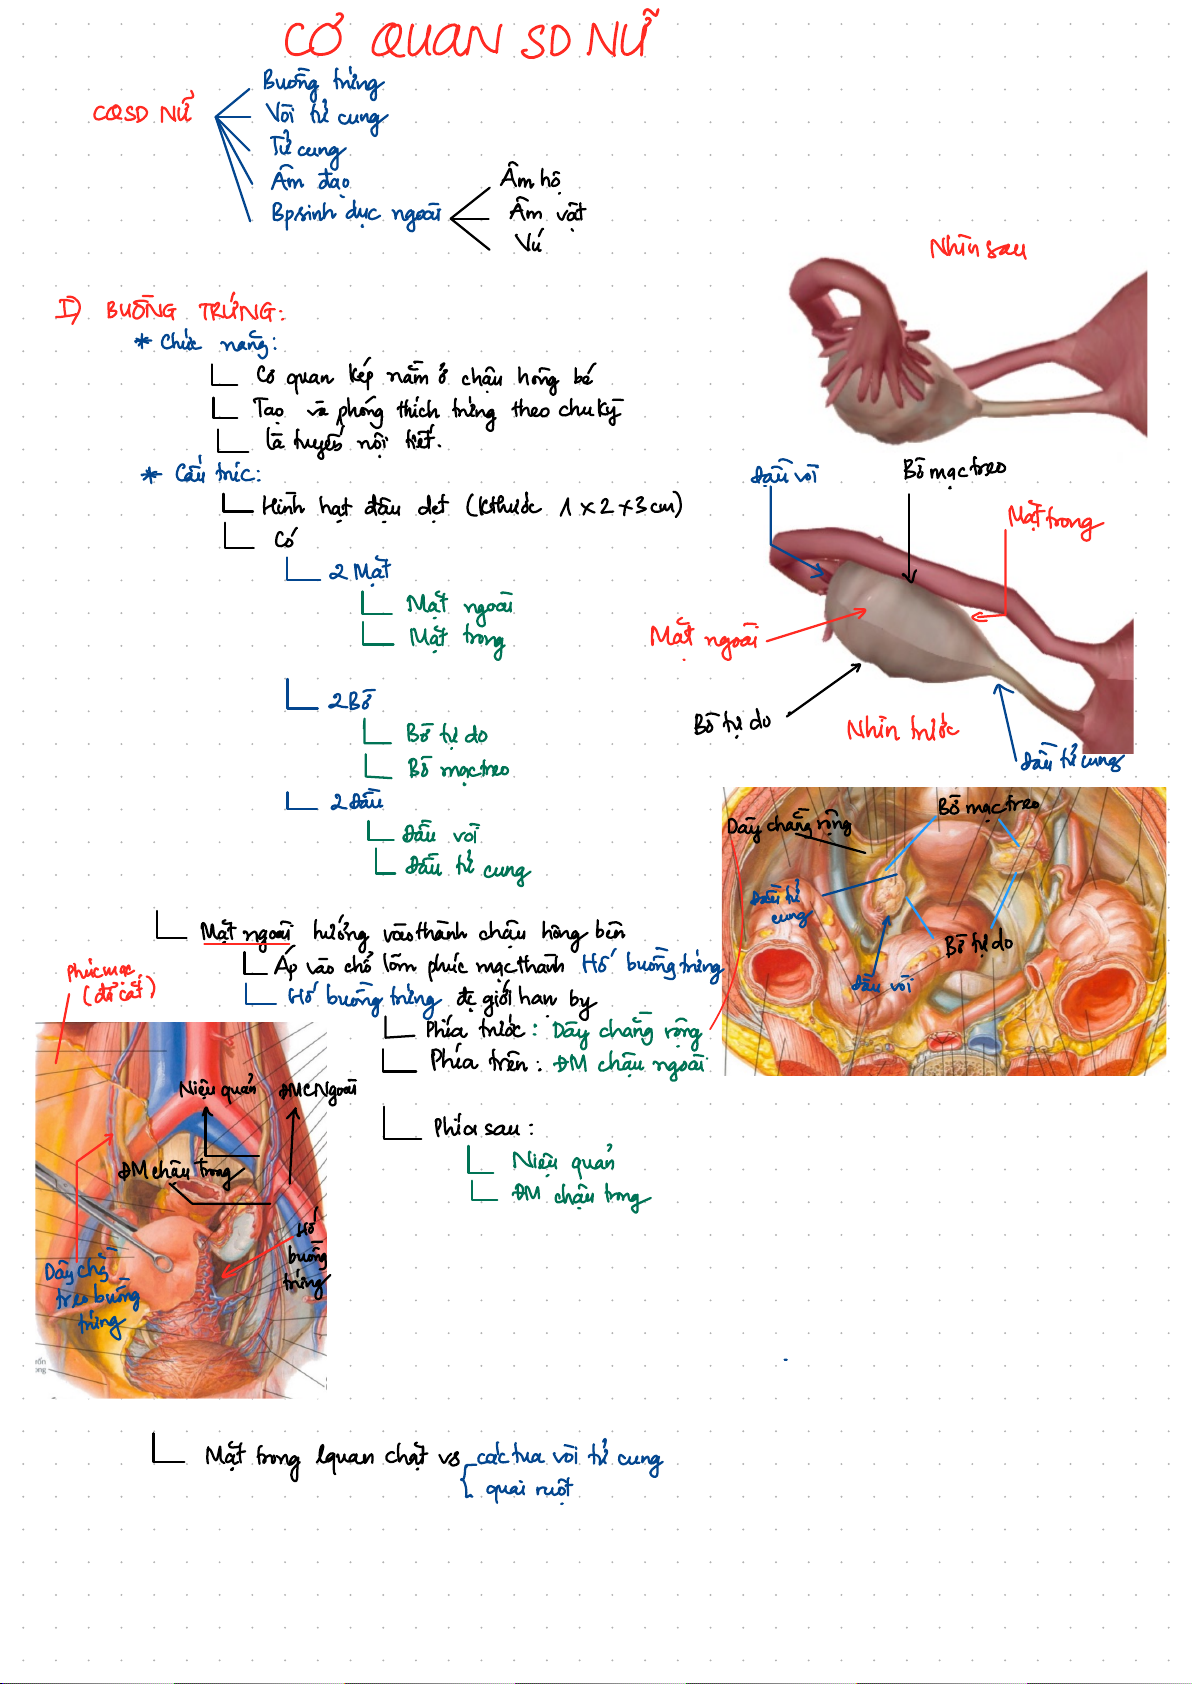 CƠ QUAN SD NỮ
CQSD NỮ
Buồng trứng
Vòi tử cung
Tử cung
Âm đạo
Bpsinh dục ngoài
Âm hộ
Âm vật
Vú
Nhìn sau
I) BUỒNG TRỨNG:
* Chức năng:
Cơ quan kép nằm ở chậu hông bé
Tạo và phóng thích trứng theo chu kỳ
là tuyến nội tiết.
* Cấu trúc:
Hình hạt đậu dẹt (Kthước 1 x 2 x 3 cm)
Có
2 Mặt
Mặt ngoài
Mặt trong
2 Bờ
Bờ tự do
Bờ mạc treo
2 Đầu
Đầu vòi
Đầu tử cung
Đầu vòi
Bờ mạc treo
Mặt trong
Mặt ngoài
Bờ tự do
Nhìn trước
Đầu tử cung
Dây chằng rộng
Bờ mạc treo
Đầu tử
cung
Bờ tự do
Đầu vòi
Mặt ngoài hướng vào thành chậu hông bên
Áp vào chỗ lõm phúc mạc thành Hố buồng trứng
Hố buồng trứng đc giới hạn by
Phía trước: Dây chằng rộng
Phía trên: ĐM chậu ngoài
Phía sau:
Niệu quản
ĐM chậu trong
Phúc mạc
(đã cắt)
Niệu quản
ĐMCNgoài
ĐM chậu trong
Hố
buồng
trứng
Dây chg
treo buồng
trứng
Mặt trong lquan chặt vs các tua vòi tử cung
quai ruột